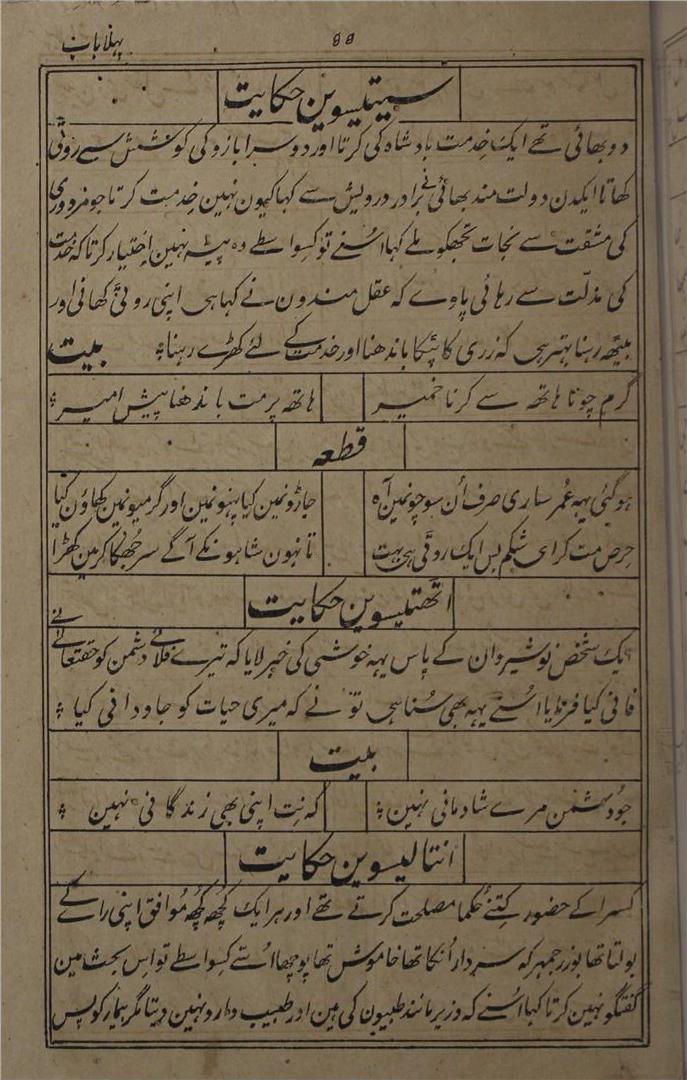 پہلا باب
۹۹
سینتیسوین حکایت
دو بھائی تھے ایک خدمت بادشاہ کی کرتا اور دوسرا بازو کی کوشش سے روٹی
کھاتا ایکدن دولت مند بھائی نے برادر درویش سے کہا کیون نہین خدمت کرتا جو مزدوری
کی مشقت سے نجات تجھکو ملے کہا اُسنے تو کسواسطے وہ پیشہ نہین اختیار کرتا کہ خدمت
کی مذلّت سے رہائی پاوے کہ عقل مندون نے کہا ہی اپنی روٹی کھانی اور
بیٹھ رہنا بہتر ہی کہ زری کا پٹکا باندھنا اور خدمت کے لئے کھڑے رہنا بیت
گرم چونا ہاتھ سے کرنا خمیر
ہاتھ پر مت باندھنا پیش امیر
قطعہ
ہوگئی یہہ عمر ساری صرف اُن سوچونمین آہ
جاڑونمین کیا پہنونمین اور گرمیونمین کھاؤن کیا
حرص مت کر ای شکم بس ایک روٹی ہی بہت
تا نہون شاہونکے آگے سر جُھکا کر مین کھڑا
اٹھتیسوین حکایت
ایک شخص نوشیروان کے پاس یہہ خوشی کی خبر لایا کہ تیرے فلانے دشمن کو حقتعالیٰ نے
فانی کیا فرمایا اُسنے یہہ بھی سُنا ہی تو نے کہ میری حیات کو جاودانی کیا
بیت
جو دُشمن مرے شادمانی نہین
کہ نِت اپنی بھی زندگانی نہین
انتالیسوین حکایت
کسرا کے حضور کتنے حکما مصلحت کرتے تھے اور ہر ایک کُچھ کُچھ مُوافق اپنی رائے کے
بولتا تھا بوزرجمہر کہ سردار اُنکا تھا خاموش تھا پوچھا اُسنے کسواسطے تو اس بحث مین
گفتگو نہین کرتا کہا اُسنے کہ وزیر مانند طبیبون کی ہین اور طبیب دارو نہین دیتا مگر بیمار کو پس